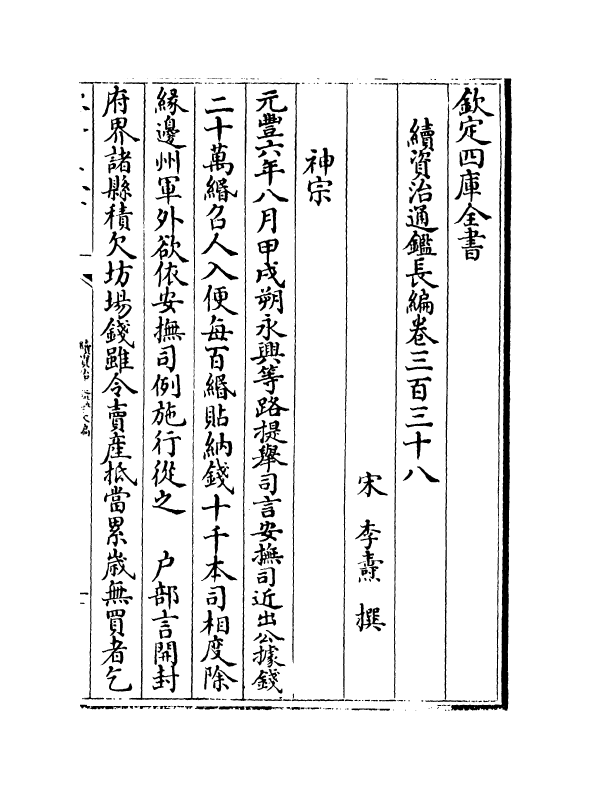 欽定四庫全書
續資治通鑑長編卷三百三十八
宋 李燾 撰
神宗
元豐六年八月甲戌朔永興等路提舉司言安撫司近出公據錢
二十萬緡召人入便每百緡貼納錢十千本司相度除
緣邊州軍外欲依安撫司例施行從之 户部言開封
府界諸縣積欠坊場錢雖令賣産抵當累歲無買者乞